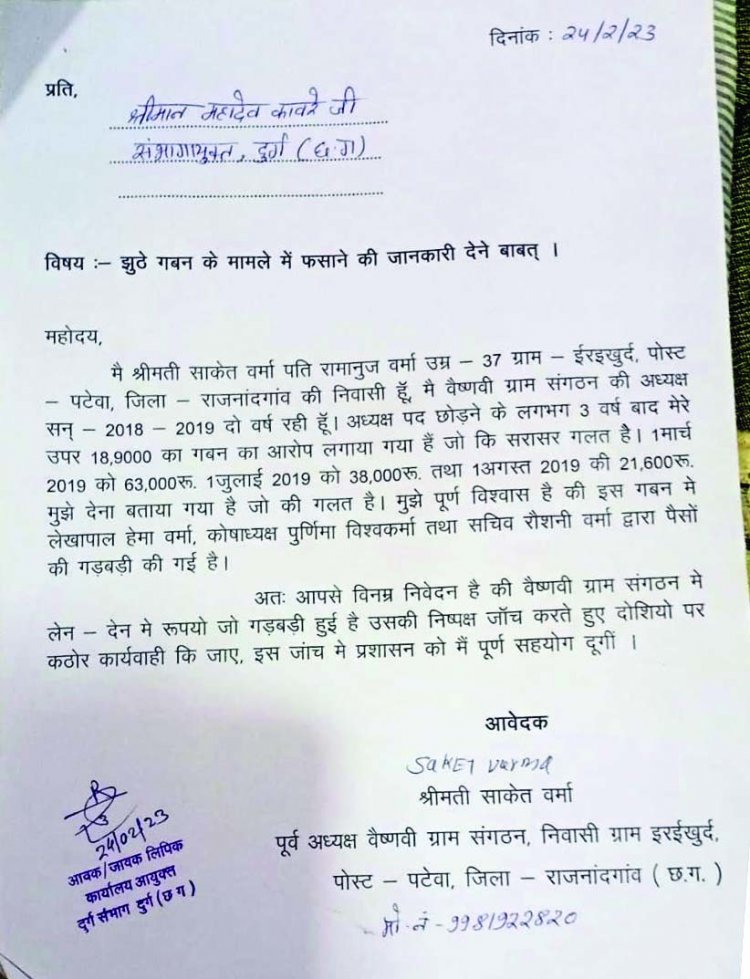 दिनांक : 24/2/23
प्रति,
श्रीमान महादेव कावरे जी
संभागायुक्त, दुर्ग (छ.ग)
विषय :– झुठे गबन के मामले में फसाने की जानकारी देने बाबत् ।
महोदय,
मै श्रीमती साकेत वर्मा पति रामानुज वर्मा उम्र – 37 ग्राम – ईरइखुर्द, पोस्ट
– पटेवा, जिला – राजनांदगांव की निवासी हूँ, मै वैष्णवी ग्राम संगठन की अध्यक्ष
सन् – 2018 – 2019 दो वर्ष रही हूँ। अध्यक्ष पद छोड़ने के लगभग 3 वर्ष बाद मेरे
उपर 18,9000 का गबन का आरोप लगाया गया हैं जो कि सरासर गलत है। 1मार्च
2019 को 63,000रू. 1जुलाई 2019 को 38,000रू. तथा 1अगस्त 2019 की 21,600रू.
मुझे देना बताया गया है जो की गलत है। मुझे पूर्ण विश्वास है की इस गबन मे
लेखापाल हेमा वर्मा, कोषाध्यक्ष पुर्णिमा विश्वकर्मा तथा सचिव रौशनी वर्मा द्वारा पैसों
की गड़बड़ी की गई है।
अतः आपसे विनम्र निवेदन है की वैष्णवी ग्राम संगठन मे
लेन – देन मे रूपयो जो गड़बड़ी हुई है उसकी निष्पक्ष जाँच करते हुए दोशियो पर
कठोर कार्यवाही कि जाए, इस जांच मे प्रशासन को मैं पूर्ण सहयोग दूगीं ।
आवेदक
SAKET Varma
श्रीमती साकेत वर्मा
पूर्व अध्यक्ष वैष्णवी ग्राम संगठन, निवासी ग्राम इरईखुर्द,
पोस्ट – पटेवा, जिला – राजनांदगांव ( छ.ग. )
मो. नं - 9981922820
24/02/23
आवक/जावक लिपिक
कार्यालय आयुक्त
दुर्ग संभाग दुर्ग (छ ग )